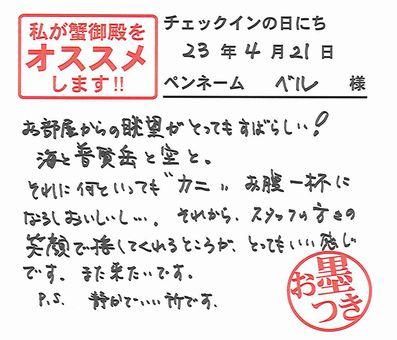 私が蟹御殿を
オススメ
します!!
チェックインの日にち
23 年 4 月 21 日
ペンネーム ベル 様
お部屋からの眺望がとってもすばらしい!
海と普賢岳と空と。
それに何といっても"カニ" お腹一杯に
なるしおいしいし…。それから、スタッフの方々の
笑顔で接してくれるところが、とってもいい感じ
です。また来たいです。
P.S. 静かでいい所です。
お墨
つき